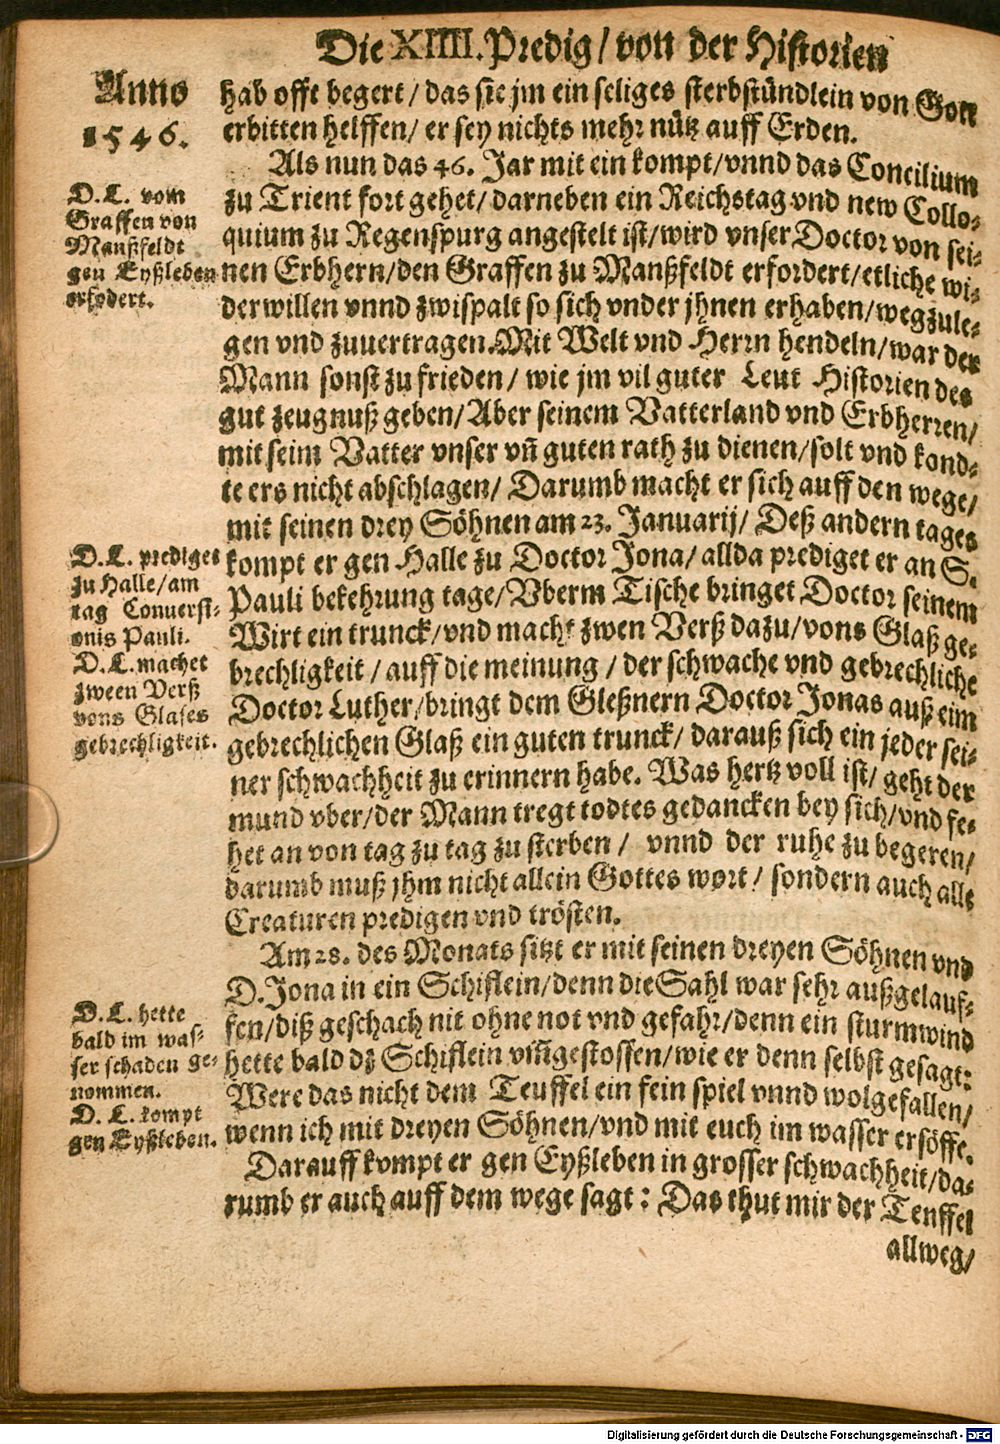 Die XIIII. Predig / von der Historien
Anno
1546.
hab offt begert / das sie jm ein seliges sterbstündlein von Gott
erbitten helffen / er sey nichts mehr nütz auff Erden.
Als nun das 46. Jar mit ein kompt / vnnd das Concilium
D. L. vom
Graffen von
Manßfeldt
gen Eyßleben
erfodert.
zu Trient fort gehet / darneben ein Reichstag vnd new Collo-
quium zu Regenspurg angestelt ist / wird vnser Doctor von sei-
nen Erbhern / den Graffen zu Manßfeldt erfordert / etliche wi-
derwillen vnnd zwispalt so sich vnder jhnen erhaben / wegzule-
gen vnd zuuertragen. Mit Welt vnd Herrn hendeln / war der
Mann sonst zu frieden / wie jm vil guter Leut Historien des
gut zeugnuß geben / Aber seinem Vatterland vnd Erbherren /
mit seim Vatter vnser vñ guten rath zu dienen / solt vnd kond-
te ers nicht abschlagen / Darumb macht er sich auff den wege /
mit seinen drey Söhnen am 23. Januarij / Deß andern tages
D. L. prediget
zu Halle / am
tag Conuersi-
onis Pauli.
D. L. machet
zween Verß
vons Glases
gebrechligkeit.
kompt er gen Halle zu Doctor Jona / allda prediget er an S.
Pauli bekehrung tage / Vberm Tische bringet Doctor seinem
Wirt ein trunck / vnd macht zwen Verß dazu / vons Glaß ge-
brechligkeit / auff die meinung / der schwache vnd gebrechliche
Doctor Luther / bringt dem Gleßnern Doctor Jonas auß eim
gebrechlichen Glaß ein guten trunck / darauß sich ein jeder sei-
ner schwachheit zu erinnern habe. Was hertz voll ist / geht der
mund vber / der Mann tregt todtes gedancken bey sich / vnd fe-
het an von tag zu tag zu sterben / vnnd der ruhe zu begeren /
darumb muß jhm nicht allein Gottes wort / sondern auch alle
Creaturen predigen vnd trösten.
Am 28. des Monats sitzt er mit seinen dreyen Söhnen vnd
D. Jona in ein Schiflein / denn die Sahl war sehr außgelauf-
D. L. hette
bald im was-
ser schaden ge-
nommen.
D. L. kompt
gen Eyßleben.
fen / diß geschach nit ohne not vnd gefahr / denn ein sturmwind
hette bald dz Schiflein vmgestossen / wie er denn selbst gesagt:
Were das nicht dem Teuffel ein fein spiel vnnd wolgefallen /
wenn ich mit dreyen Söhnen / vnd mit euch im wasser ersöffe.
Darauff kompt er gen Eyßleben in grosser schwachheit / da-
rumb er auch auff dem wege sagt : Das thut mir der Teuffel
allweg /
Digitalisierung gefördert durch die Deutsche Forschungsgemeinschaft - DFG